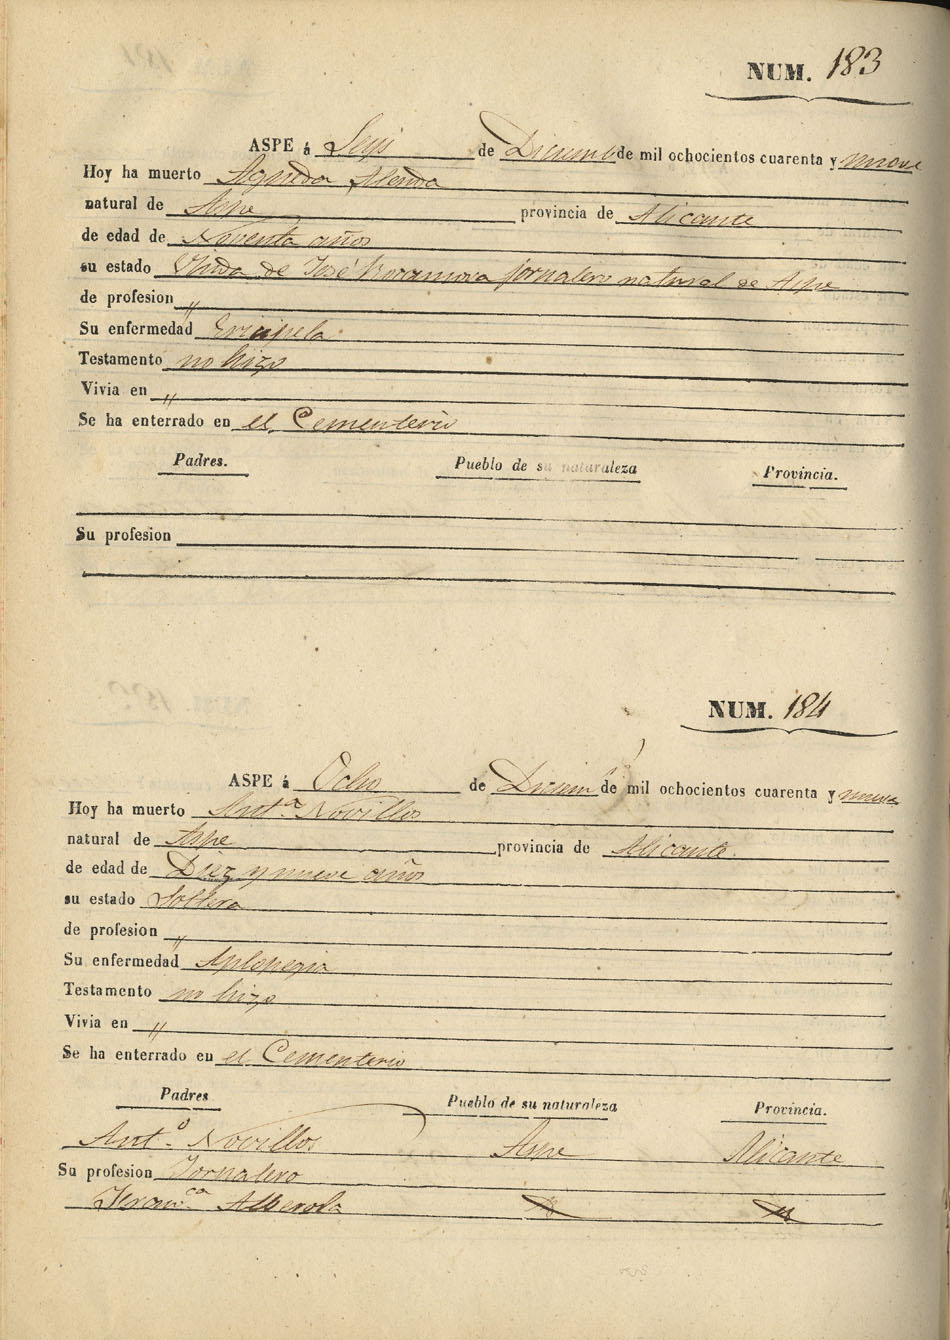 NUM. 183
ASPE á Seys de Diciemb de mil ochocientos cuarenta y nueve
Hoy ha muerto Agueda Alenda
natural de Aspe provincia de Alicante
de edad de Noventa años
su estado Viuda de José Rocamora jornalero natural de Aspe
de profesion "
Su enfermedad Ericipela
Testamento no hizo
Vivia en "
Se ha enterrado en el Cementerio
Padres. Pueblo de su naturaleza Provincia.
Su profesion
NUM. 184
ASPE á Ocho de Diciem de mil ochocientos cuarenta y nueve
Hoy ha muerto Ant.ª Novillos
natural de Aspe provincia de Alicante.
de edad de Diez y nueve años
su estado Soltera
de profesion "
Su enfermedad Aplopegia
Testamento no hizo
Vivia en "
Se ha enterrado en el Cementerio
Padres Pueblo de su naturaleza Provincia.
Ant.º Novillos Aspe Alicante
Su profesion Jornalero
Fran.ca Alberola